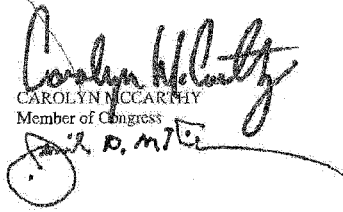 Carolyn McCarthy
CAROLYN MCCARTHY
Member of Congress